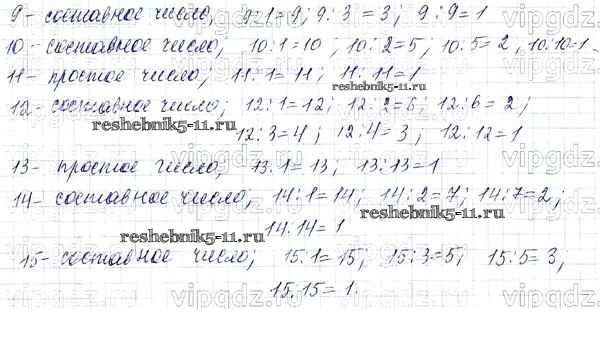 9- составное число, 9:1=9; 9:3=3; 9:9=1
10- составное число, 10:1=10; 10:2=5; 10:5=2, 10:10=1.
11- простое число; 11:1=11; 11:11=1
12- составное число; 12:1=12; 12:2=6; 12:6=2;
reshebnik5-11.ru
12:3=4; 12:4=3; 12:12=1
13- простое число, 13:1=13; 13:13=1
14- составное число, 14:1=14; 14:2=7; 14:7=2;
reshebnik5-11.ru
14:14=1
reshebnik5-11.ru
15- составное число; 15:1=15; 15:3=5; 15:5=3;
15:15=1.
vipgdz.ru